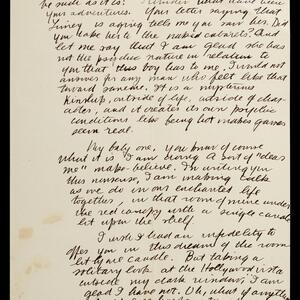 be such as it is! Wonder what have been
your adventures. Your letter saying that
is agreeing tells me you saw her. Did
you take her to the naked cabarets? And
let me say that I am glad she has
not the nature in relation to
you that this boy has to me. I would not
answer for any man who felt like that
toward someone. It is a mysterious
kinship, outside of life, outside of
and it creates its own
conditions like being hot makes games
seem real.
My baby one. You know of course
what it is I am doing a sort of "dear
me" make-believe. In writing you
this nonsense, I am making talk
as we do in our enchanted life
together, in that room of mine under
the red canopy with a single candle
lit upon the shelf.
I wish I had an infidelity to
offer you in this dream of the room
lit by one candle. But taking a
solitary look at the Hollywood vista
outside my dark windows, I am
glad I have not. Oh, what of anything